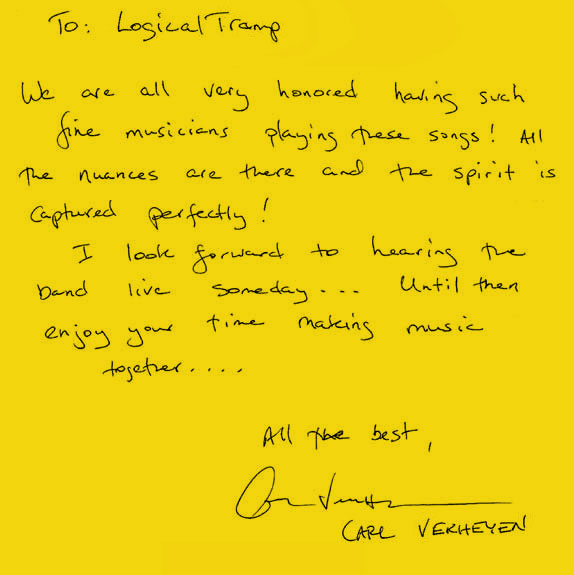 To: LogicalTramp
We are all very honored having such
fine musicians playing these songs! All
the nuances are there and the spirit is
captured perfectly!
I look forward to hearing the
band live someday... Until then
enjoy your time making music
together....
All the best,
CARL VERHEYEN